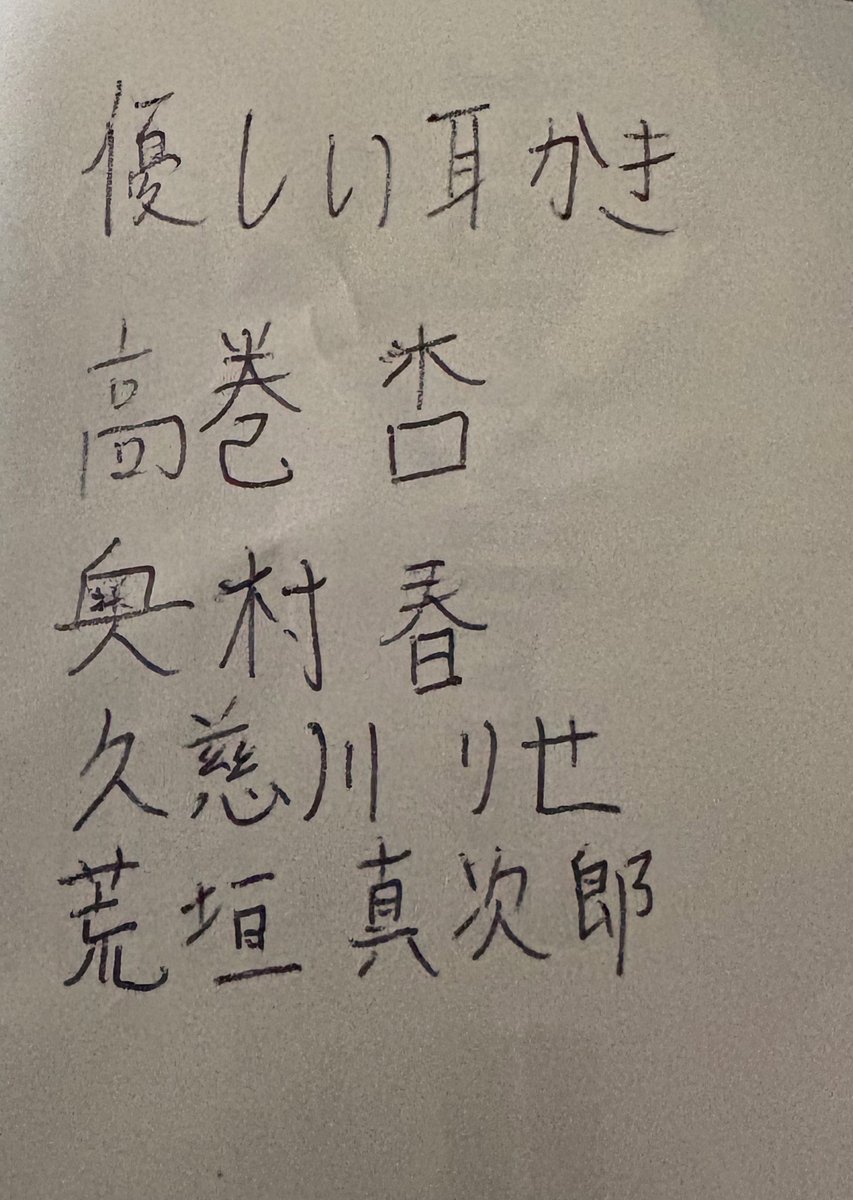 優しい耳かき
高巻 杏
奥村 春
久慈川 りせ
荒垣 真次郎